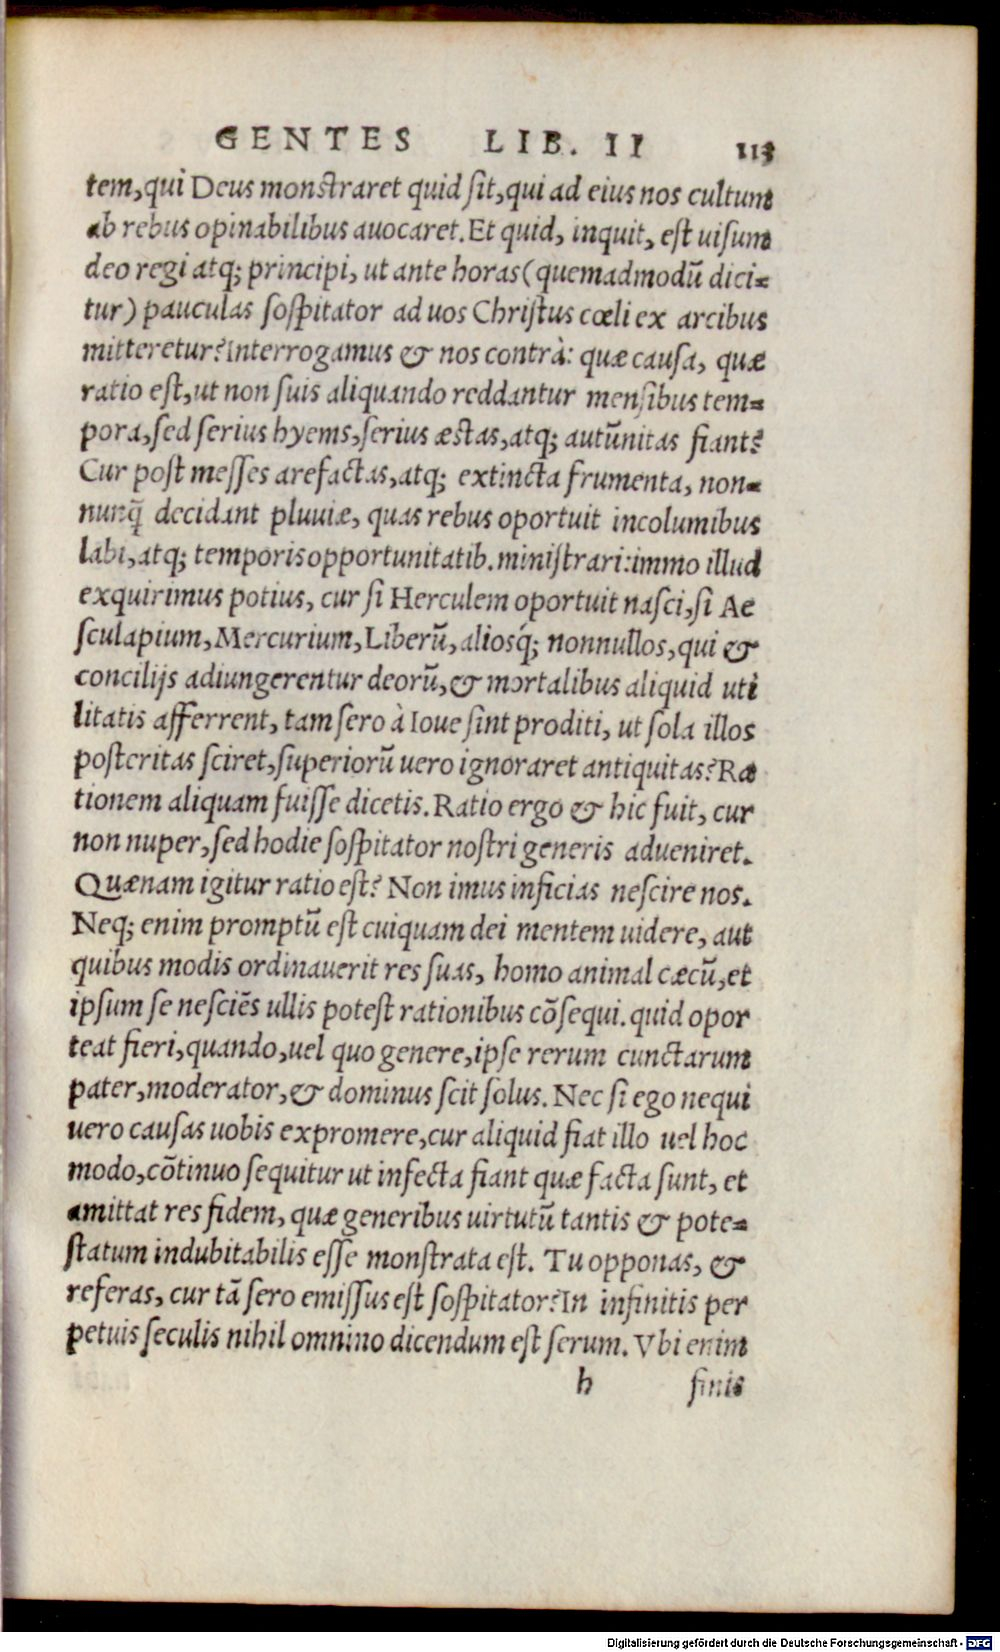 GENTES LIB. II 113
tem, qui Deus monstraret quid sit, qui ad eius nos cultum
ab rebus opinabilibus avocaret. Et quid, inquit, est uisum
deo regi atq; principi, ut ante horas (quemadmodū dici-
tur) pauculas sospitator ad uos Christus cœli ex arcibus
mitteretur? Interrogamus & nos contrà: quæ causa, quæ
ratio est, ut non suis aliquando reddantur mensibus tem-
pora, sed serius hyems, serius æstas, atq; autūnitas fiant?
Cur post messes arefactas, atq; extincta frumenta, non-
nunq̃ decidant pluuiæ, quas rebus oportuit incolumibus
labi, atq; temporis opportunitatib. ministrari: immo illud
exquirimus potius, cur si Herculem oportuit nasci, si Ae
sculapium, Mercurium, Liberū, aliosq́; nonnullos, qui &
concilijs adiungerentur deorū, & mortalibus aliquid uti
litatis afferrent, tam sero à Ioue sint proditi, ut sola illos
posteritas sciret, superiorū uero ignoraret antiquitas? Ra
tionem aliquam fuisse dicetis. Ratio ergo & hic fuit, cur
non nuper, sed hodie sospitator nostri generis adueniret.
Quænam igitur ratio est? Non imus inficias nescire nos.
Neq; enim promptū est cuiquam dei mentem uidere, aut
quibus modis ordinauerit res suas, homo animal cæcū, et
ipsum se nesciēs ullis potest rationibus cōsequi. quid opor
teat fieri, quando, uel quo genere, ipse rerum cunctarum
pater, moderator, & dominus scit solus. Nec si ego nequi
uero causas uobis expromere, cur aliquid fiat illo uel hoc
modo, cōtinuo sequitur ut infecta fiant quæ facta sunt, et
amittat res fidem, quæ generibus uirtutū tantis & pote-
statum indubitabilis esse monstrata est. Tu opponas, &
referas, cur tā sero emissus est sospitator? In infinitis per
petuis seculis nihil omnino dicendum est serum. Vbi enim
h finis
Digitalisierung gefördert durch die Deutsche Forschungsgemeinschaft - DFG